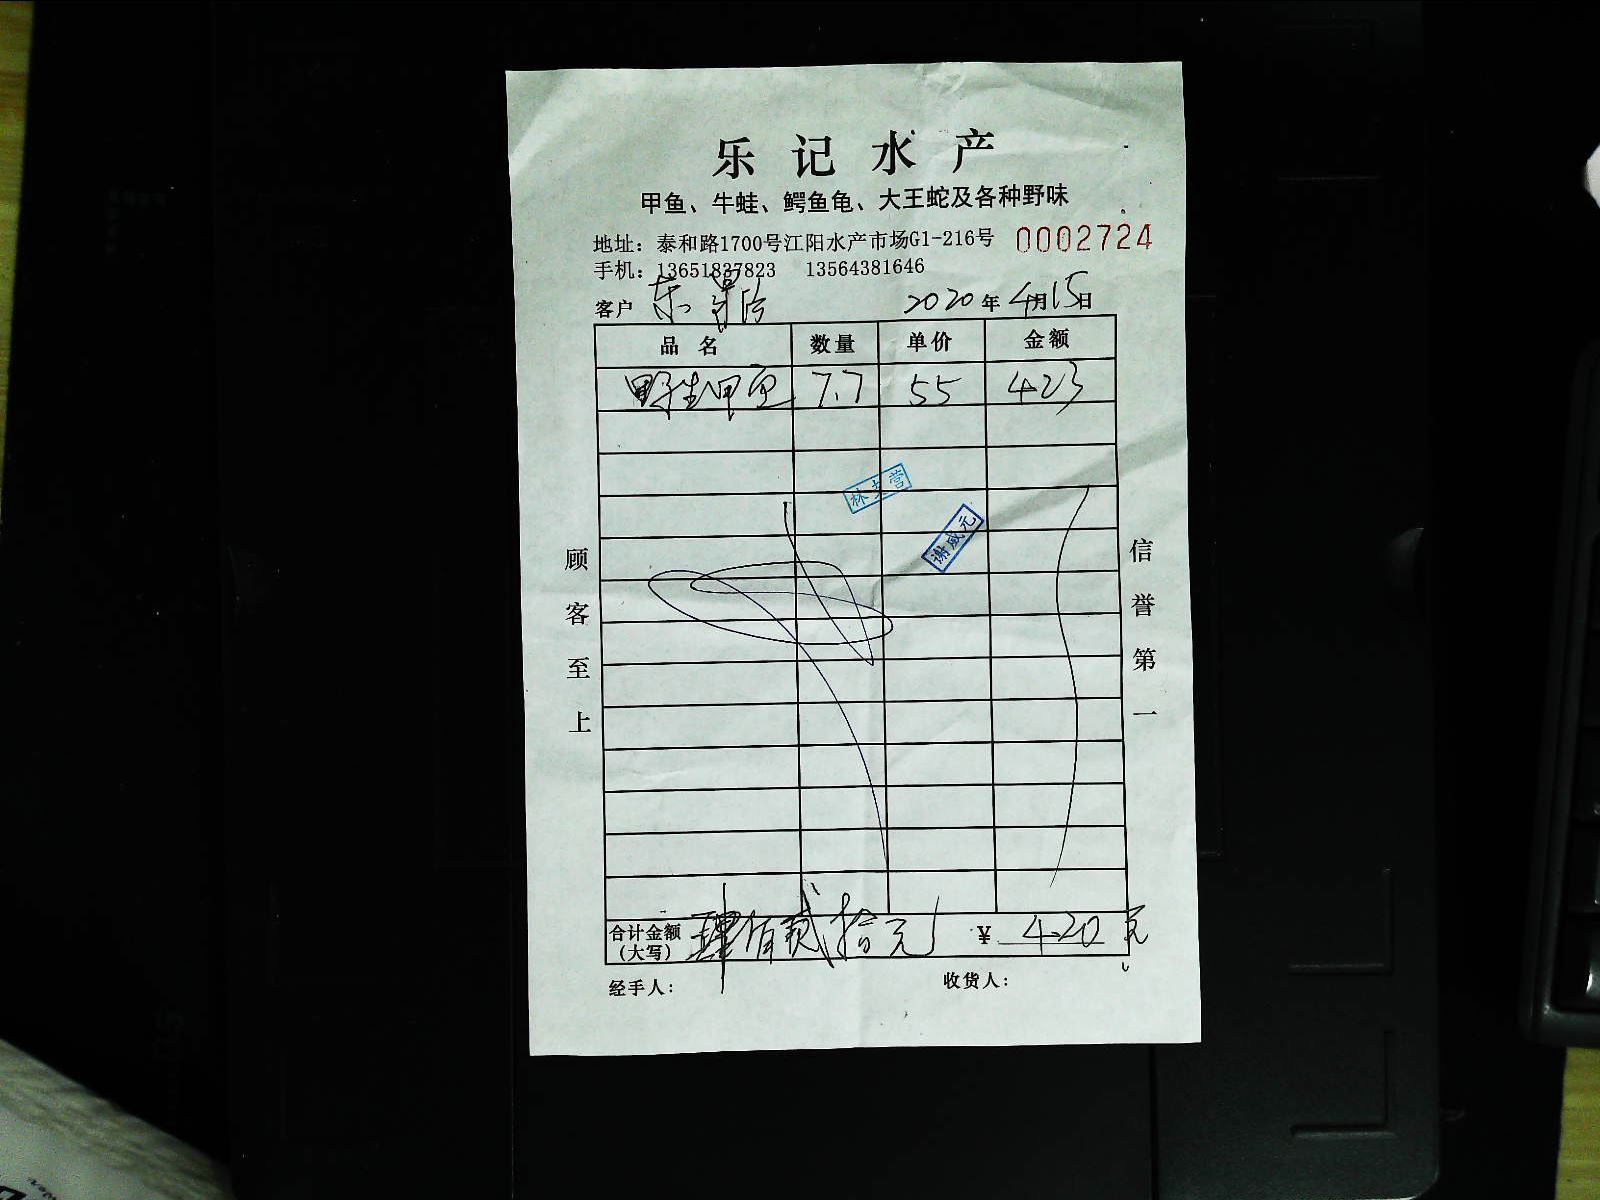 乐记水产
甲鱼、牛蛙、鳄鱼龟、大王蛇及各种野味
地址：泰和路1700号江阳水产市场G1-216号 0002724
手机：13651837823 13564381646
客户 2020年4月15日
品名 数量 单价 金额
野生甲鱼 7.7 55 423
林 营
谢威元
顾客至上
信誉第一
合计金额（大写） 肆佰贰拾元 ¥ 420元
经手人： 收货人：